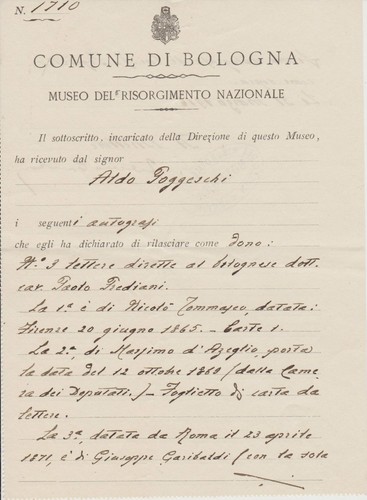 N. 1710
COMUNE DI BOLOGNA
MUSEO DEL RISORGIMENTO NAZIONALE
Il sottoscritto, incaricato della Direzione di questo Museo,
ha ricevuto dal signor
Aldo Poggeschi
i seguenti autografi
che egli ha dichiarato di rilasciare come dono:
N.° 3 lettere dirette al bolognese dott.
cav. Paolo Prediani.
La 1ª è di Nicolò Tommaseo, datata:
Firenze 20 giugno 1865. - Carte 1.
La 2ª, di Massimo d'Azeglio, porta
la data del 12 ottobre 1862 (dalla Came
ra dei Deputati.) - Foglietto di carta da
lettere.
La 3ª, datata da Roma il 23 aprile
1871, è di Giuseppe Garibaldi (con la sola